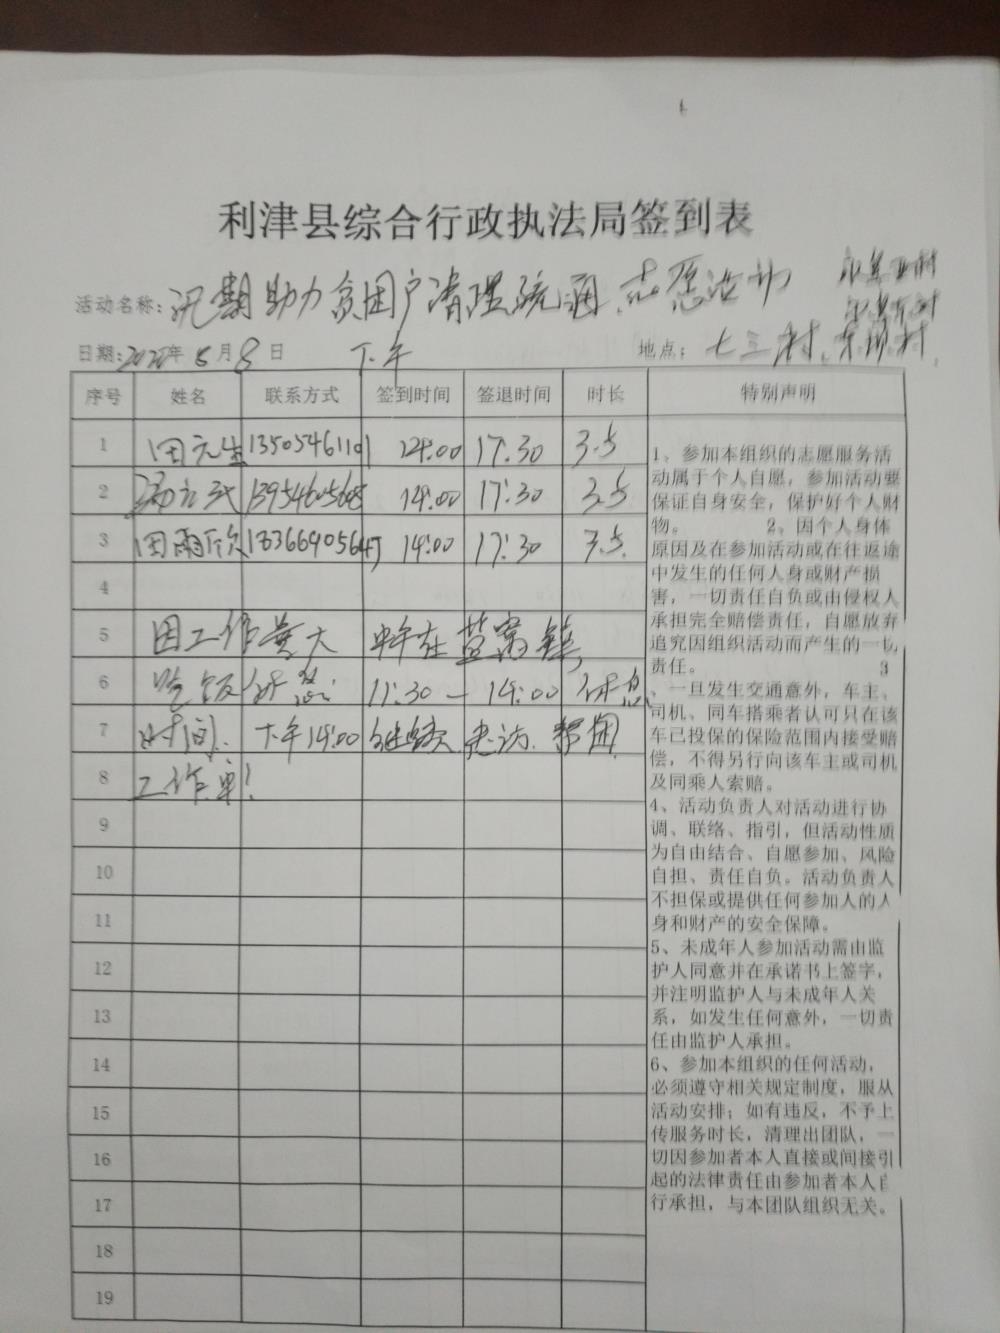 利津县综合行政执法局签到表
活动名称：汛期助力贫困户清理疏通志愿活动
日期：2020年8月8日 下午 地点：七三村、
序号 姓名 联系方式 签到时间 签退时间 时长 特别声明
1 田元生 13505461101 14:00 17:30 3.5
2 13954605605 14:00 17:30 3.5
3 田雨欣 18366905647 14:00 17:30 3.5
4
5 因工作量大 中午在盐窝镇
6 吃饭休息 11:30—14:00 休息
7 时间. 下午14:00继续 走访.帮困
8 工作.
9
10
11
12
13
14
15
16
17
18
19
1、参加本组织的志愿服务活
动属于个人自愿，参加活动要
保证自身安全，保护好个人财
物。 2、因个人身体
原因及在参加活动或在往返途
中发生的任何人身或财产损
害，一切责任自负或由侵权人
承担完全赔偿责任，自愿放弃
追究因组织活动而产生的一切
责任。 3
、一旦发生交通意外，车主、
司机、同车搭乘者认可只在该
车已投保的保险范围内接受赔
偿，不得另行向该车主或司机
及同乘人索赔。
4、活动负责人对活动进行协
调、联络、指引，但活动性质
为自由结合、自愿参加、风险
自担、责任自负。活动负责人
不担保或提供任何参加人的人
身和财产的安全保障。
5、未成年人参加活动需由监
护人同意并在承诺书上签字，
并注明监护人与未成年人关
系，如发生任何意外，一切责
任由监护人承担。
6、参加本组织的任何活动，
必须遵守相关规定制度，服从
活动安排；如有违反，不予上
传服务时长，清理出团队，一
切因参加者本人直接或间接引
起的法律责任由参加者本人自
行承担，与本团队组织无关。